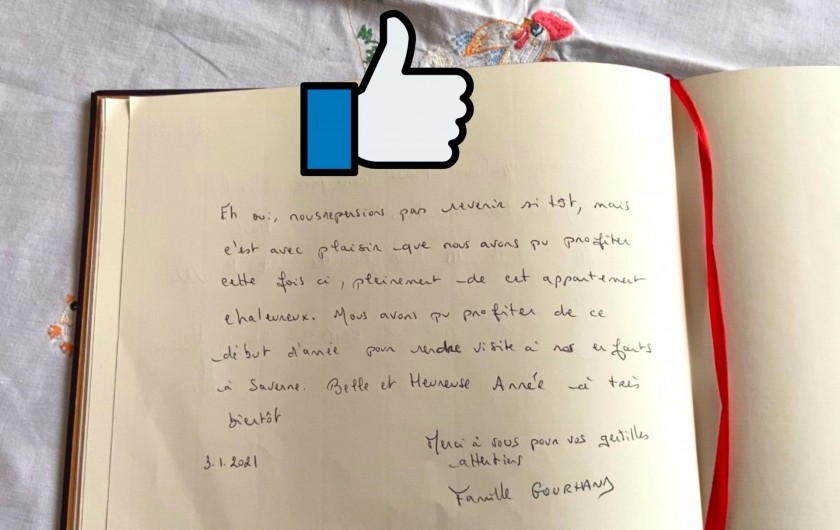 Eh oui, nous ne pensions pas revenir si tôt, mais
c'est avec plaisir que nous avons pu profiter
cette fois ci, pleinement de cet appartement
chaleureux. Nous avons pu profiter de ce
début d'année pour rendre visite à nos enfants
à Saverne. Belle et Heureuse Année à très
bientôt
Merci à vous pour vos gentilles
attentions
3.1.2021
Famille GOURHAND